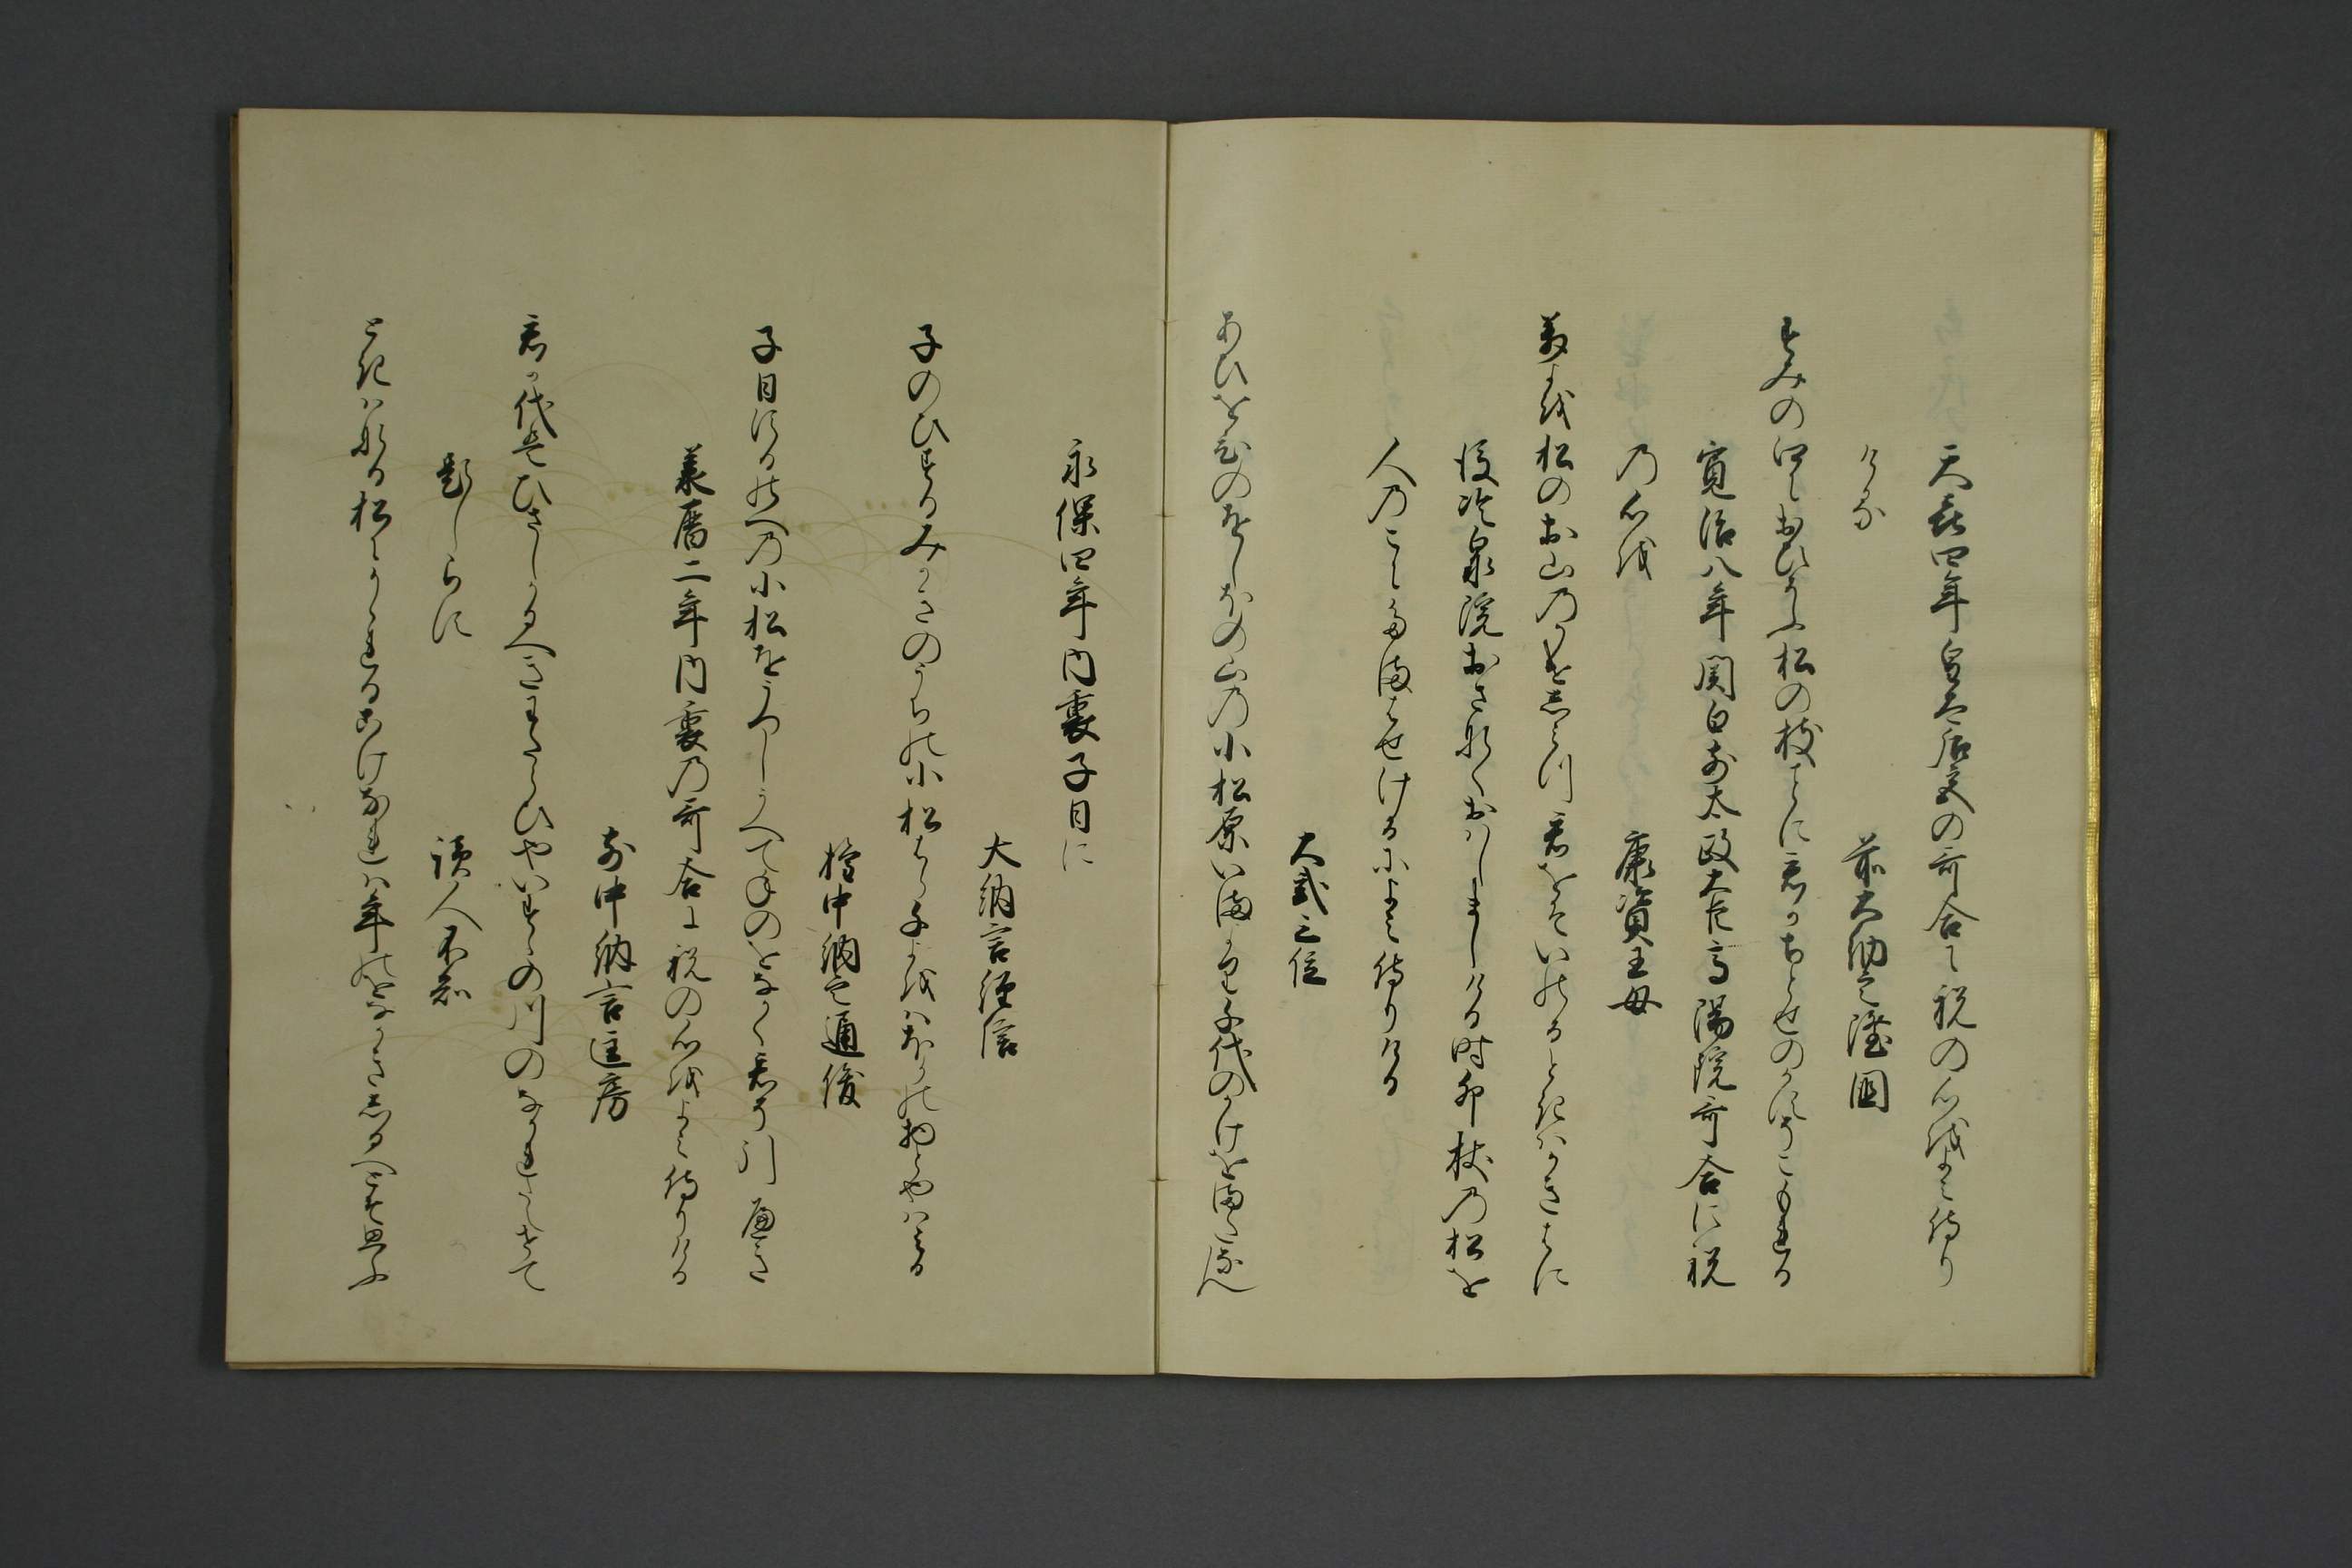 天喜四年皇太后宮の哥合に祝の心をよみ侍り
ける
前大納言隆国
すみの江におひそふ松の枝ことに君かちとせのかすそこもれる
寛治八年関白前太政大臣高陽院哥合に祝
の心を
康資王母
萬よを松のお山のかけしけみ君をそいのるときはかきはに
後冷泉院おさなくおはしましける時卯杖の松を
人のこにたまはせけるによみ侍りける
大貳三位
あひをひのをしほの山の小松原いまより千代のかけをまたなん
永保四年内裏子日に
大納言経信
子のひするみかきのうちの小松はら千よをはほかの物とやはみる
権中納言通俊
子日する野への小松をうつしうへて年のをなかく君そ引へき
承暦二年内裏の哥合に祝の心をよみ侍りける
前中納言匡房
君か代はひさしかるへきわたらひやいすゝの川のなかれたえせて
題しらに
読人不知
ときはなる松にかゝれるこけなれは年のをなかきしるへとそ思ふ